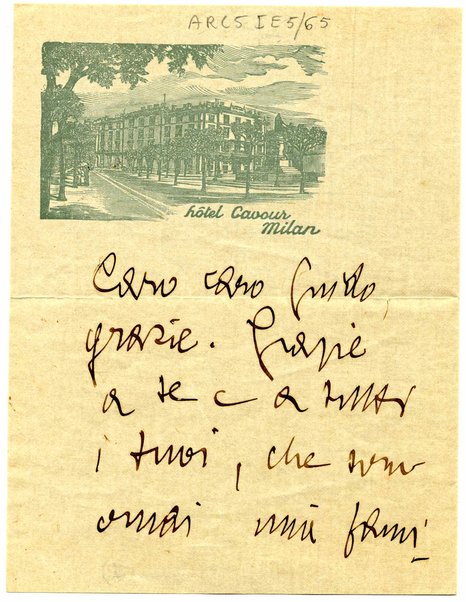 ARC5 I E 5/65
hôtel Cavour
Milan
Caro caro Guido,
grazie. Grazie
a te e a tutti
i tuoi, che sono
ormai miei fami